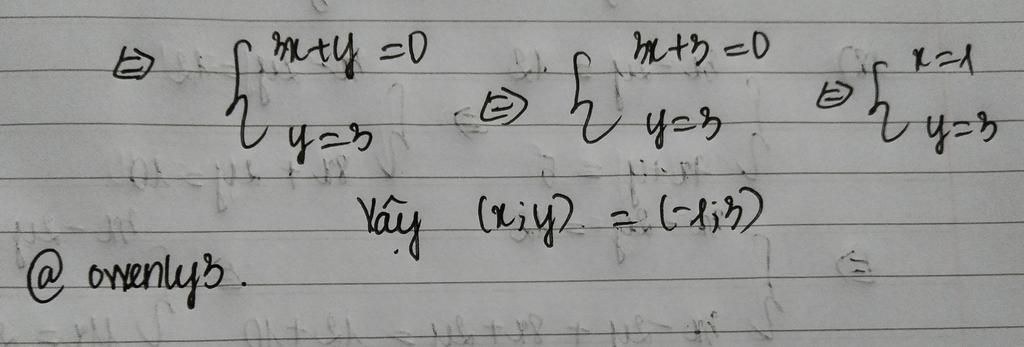 ⇔ { 3x+y=0 ⇔ { 3x+3=0 ⇔ { x=1
y=3 y=3 y=3
Vậy (x;y) = (-1;3)
@ owenly3.